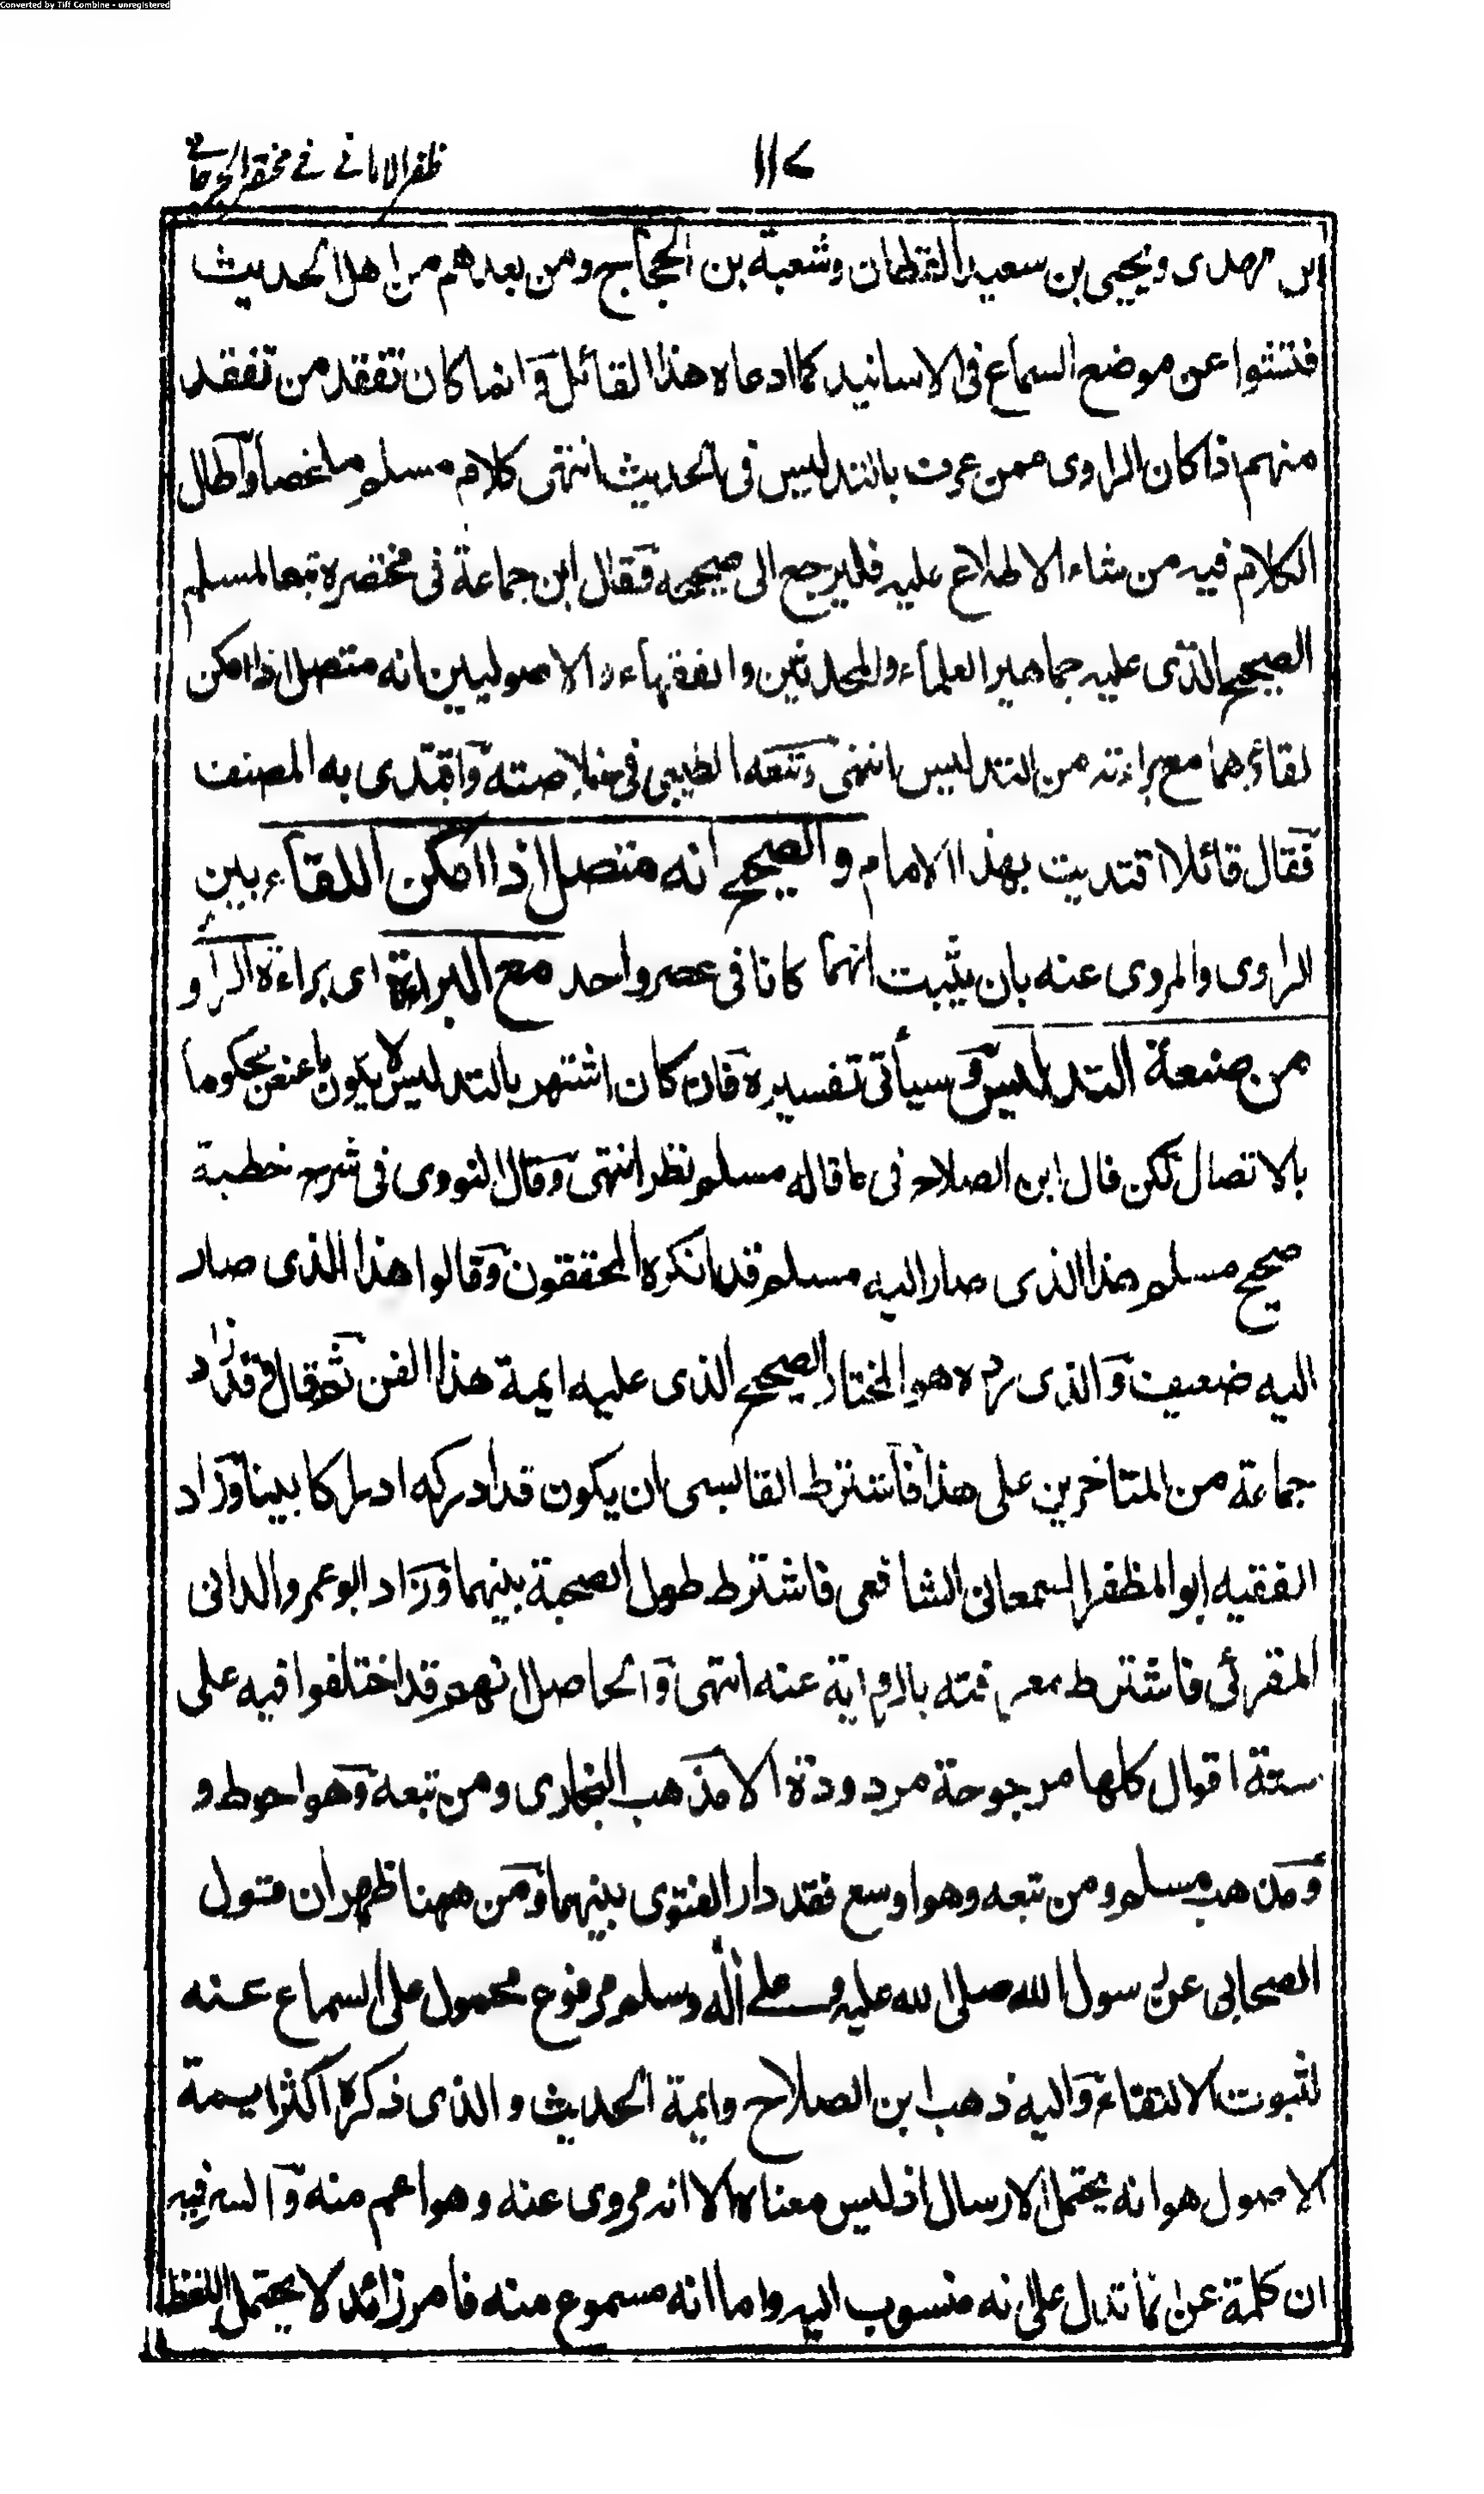 Converted by Tiff Combine - unregistered
١١٧
ظفر الامانی فی مختصر الجرجانی
ابن مهدى ويحيى بن سعيد القطان وشعبة بن الحجاج ومن بعدهم من اهل الحديث
فتشوا عن موضع السماع فى الاسانيد كما ادعاه هذا القائل وانما كان تفقد من تفقد
منهم اذا كان الراوى ممن عرف بالتدليس فى الحديث انتهى كلام مسلم ملخصا واطال
الكلام فيه من شاء الاطلاع عليه فليرجع الى صحيحه فقال ابن جماعة فى مختصره تبعا لمسلم
الصحيح الذى عليه جماهير العلماء والمحدثين والفقهاء والاصوليين انه متصل اذا امكن
لقاؤهما مع براءته من التدليس انتهى وتبعه الطيبى فى خلاصته واقتدى به المصنف
فقال قائلا اقتديت بهذا الامام والصحيح انه متصل اذا امكن اللقاء بين
الراوى والمروى عنه بان يثبت انهما كانا فى عصر واحد مع البراءة اى براءة الراو
من صنعة التدليس وسيأتى تفسيره فان كان اشتهر بالتدليس لا يكون ما عنعن محكوما
بالاتصال لكن قال ابن الصلاح فى ما قاله مسلم نظر انتهى وقال النووى فى شرح خطبة
صحيح مسلم هذا الذى صار اليه مسلم قد انكره المحققون وقالوا هذا الذى صار
اليه ضعيف والذى رده هو المختار الصحيح الذى عليه ايمة هذا الفن ثم قال وقد زاد
جماعة من المتاخرين على هذا فاشترط القابسى ان يكون قد ادركه ادراكا بينا وزاد
الفقيه ابو المظفر السمعانى الشافعى فاشترط طول الصحبة بينهما وزاد ابو عمرو الدانى
المقرئى فاشترط معرفته بالرواية عنه انتهى والحاصل انهم قد اختلفوا فيه على
ستة اقوال كلها مرجوحة مردودة الا مذهب البخارى ومن تبعه وهو احوط و
ومذهب مسلم ومن تبعه وهو اوسع فقد دار الفتوى بينهما ومن ههنا ظهر ان قول
الصحابى عن رسول الله صلى الله عليه وعلى اله وسلم مرفوع محمول على السماع عنه
لثبوت الالتقاء واليه ذهب ابن الصلاح وايمة الحديث والذى ذكره اكثر ايمة
الاصول هو انه يحتمل الارسال اذ ليس معناه الا انه مروى عنه وهو اعم منه والسر فيه
ان كلمة عن انما تدل على انه منسوب اليه واما انه مسموع منه فامر زائد لا يحتمل اللفظ